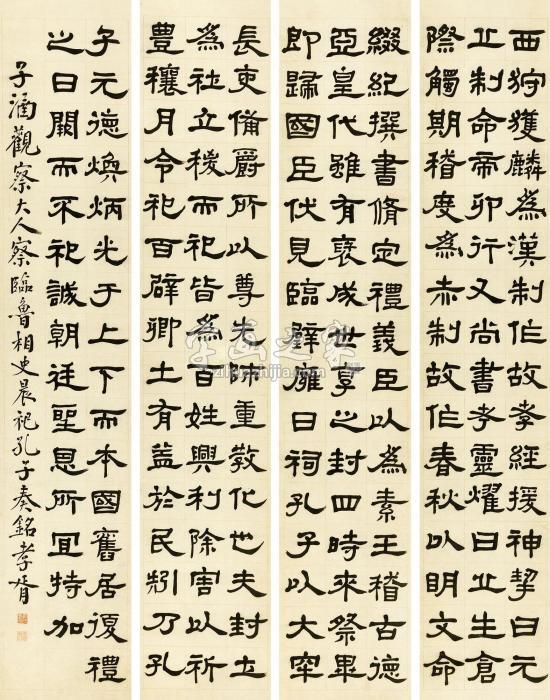 西狩獲麟為漢制作故孝經援神挈曰元
丘制命帝卯行又尚書考靈燿曰丘生倉
際觸期稽度為赤制故作春秋以明文命
綴紀撰書脩定禮義臣以為素王稽古德
亞皇代雖有襃成世享之封四時來祭畢
即歸國臣伏見臨辟廱日祠孔子以大牢
長吏備爵所以尊先師重教化也夫封土
為社立稷而祀皆為百姓興利除害以祈
豊穰月令祀百辟卿士有益於民矧乃孔
子元德煥炳光于上下而本國舊居復禮
之日闕而不祀誠朝廷聖恩所冝特加
子涵觀察大人察臨魯相史晨祀孔子奏銘孝胥
字画之家